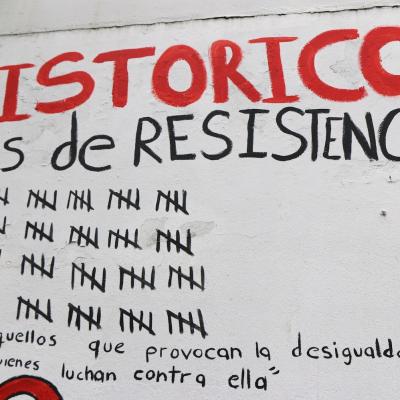 ISTORICO
s de RESISTENC
quellos que provocan la desigualda
uienes luchan contra ella"